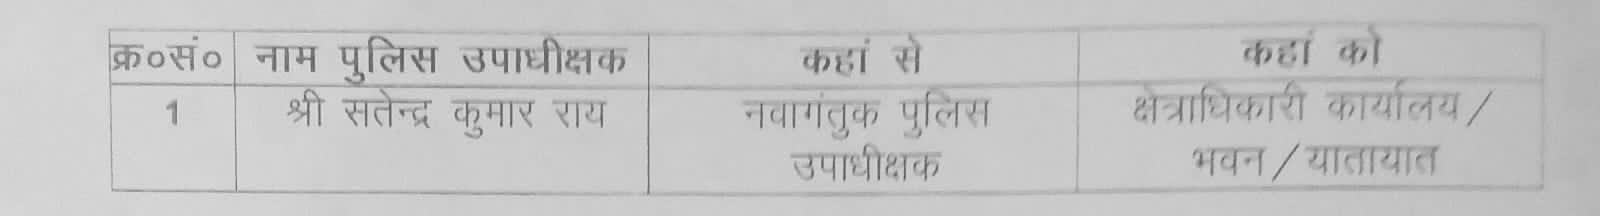 क्र०सं० नाम पुलिस उपाधीक्षक कहां से कहां को
1 श्री सतेन्द्र कुमार राय नवागंतुक पुलिस क्षेत्राधिकारी कार्यालय/
उपाधीक्षक भवन/यातायात